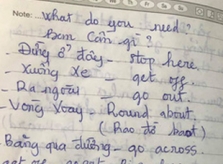 Note: What do you need?
Bem Cần gì?
- Đừng ở đây - stop here
- Xuống Xe - get off
- Ra ngoài - go out.
- Vòng Voay - Round about
(
Băng qua đường - go across
get off